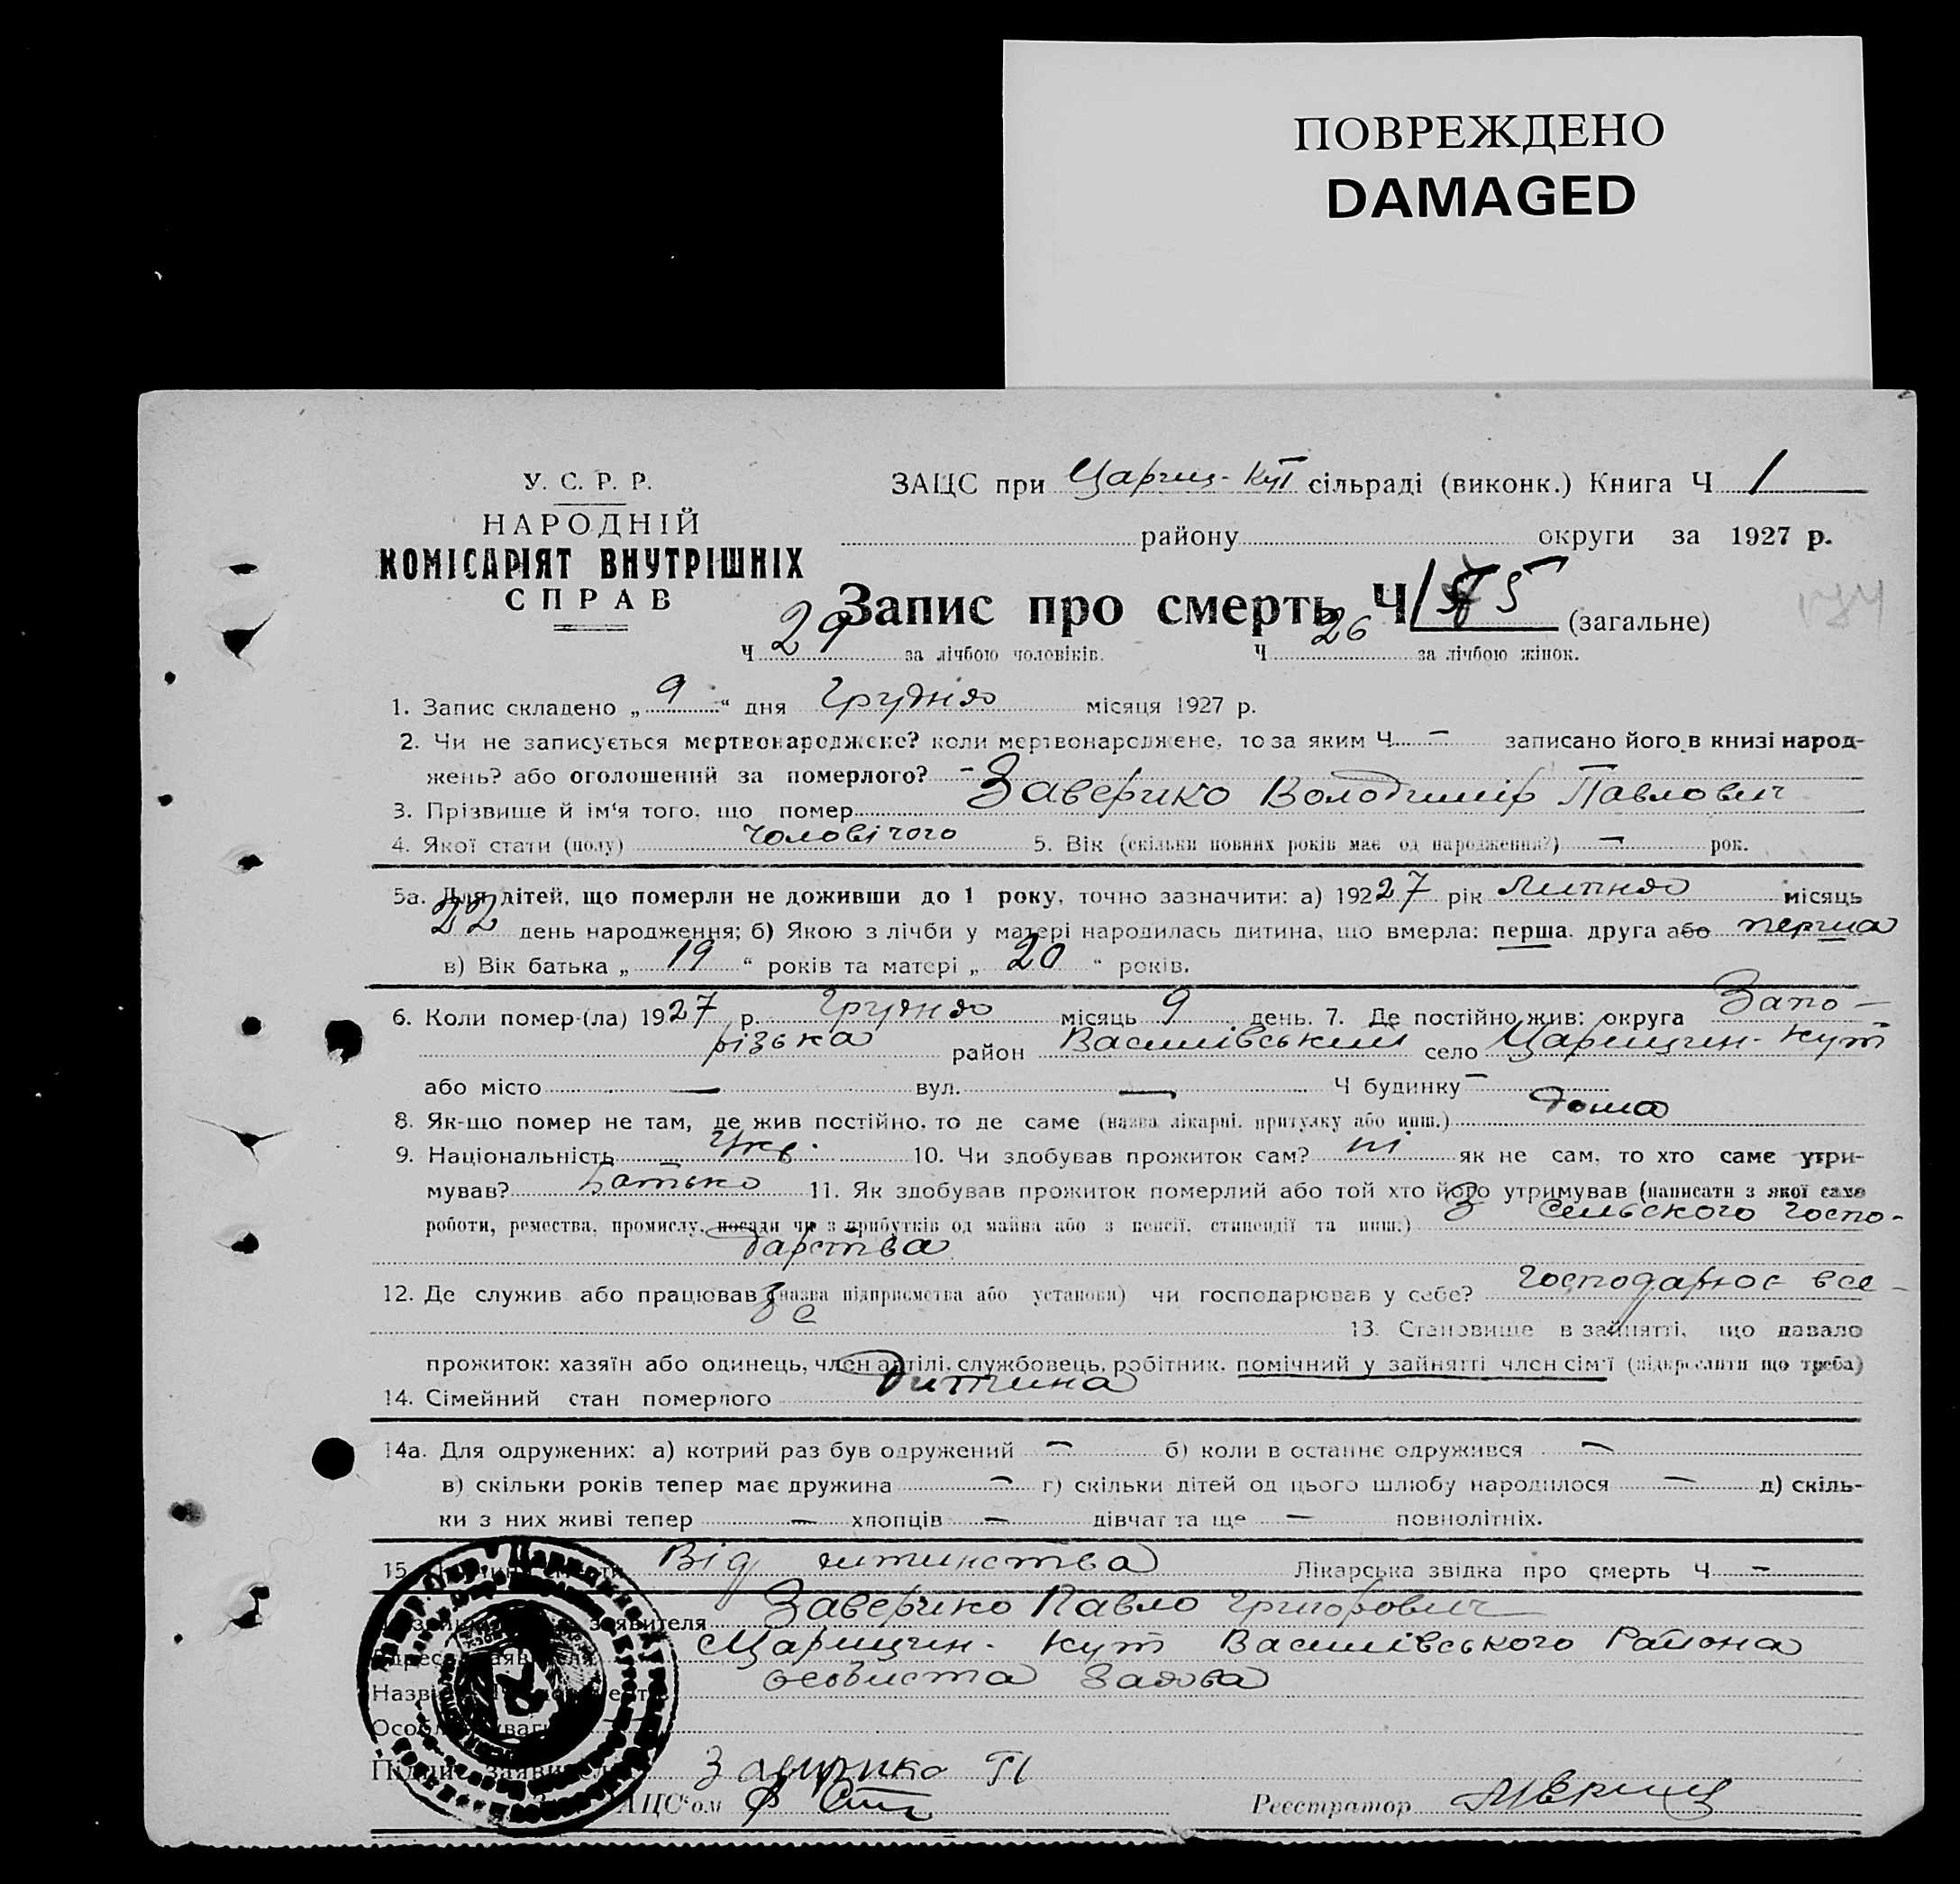 ПОВРЕЖДЕНО
DAMAGED
У. С. Р. Р.
НАРОДНІЙ
КОМІСАРІЯТ ВНУТРІШНІХ
СПРАВ
ЗАЦС при Цариц-Кут сільраді (виконк.) Книга Ч 1
району округи за 1927 р.
Запис про смерть Ч (загальне)
Ч 29 за лічбою чоловіків. Ч 26 за лічбою жінок.
1. Запис складено „ 9 “ дня Грудня місяця 1927 р.
2. Чи не записується мертвонароджене? коли мертвонароджене, то за яким Ч. – записано його в книзі народ-
жень? або оголошений за померлого? –
3. Прізвище й ім'я того, що помер Заверико Володимір Павлович
4. Якої стати (полу) Чоловічого 5. Вік (скільки повних років має од народження?) – рок.
5а. Для дітей, що померли не доживши до 1 року, точно зазначити: а) 19227 рік Липня місяць
22 день народження; б) Якою з лічби у матері народилась дитина, що вмерла: перша. друга або перша
в) Вік батька „ 19 “ років та матері „ 20 “ років.
6. Коли помер-(ла) 1927 р. Грудня місяць 9 день. 7. Де постійно жив: округа Запо-
різька район Василівський село Царицин-Кут
або місто — вул. — Ч будинку –
8. Як-що помер не там, де жив постійно, то де саме (назва лікарні, притулку або инш.) дома
9. Національність Укр. 10. Чи здобував прожиток сам? ні як не сам, то хто саме утри-
мував? Батько 11. Як здобував прожиток померлий або той хто його утримував (написати з якої саме
роботи, ремества, промислу, посади чи з прибутків од майна або з пенсії, стипендії та инш.) З сельского госпо-
дарства
12. Де служив або працював (назва підприємства або установи) чи господарював у себе? господарює в се-
13. Становище в зайнятті, що давало
прожиток: хазяїн або одинець, член артілі, службовець, робітник, помічний у зайнятті член сім'ї (підкреслити що треба)
14. Сімейний стан померлого Дитина
14а. Для одружених: а) котрий раз був одружений – б) коли в останнє одружився –
в) скільки років тепер має дружина – г) скільки дітей од цього шлюбу народилося – д) скіль-
ки з них живі тепер – хлопців – дівчат та ще – повнолітніх.
15. Від дитинства Лікарська звідка про смерть Ч –
заявителя Заверико Павло Григорович
Царицин-Кут Василівського Района
особиста заява
Заверико П
Реєстратор